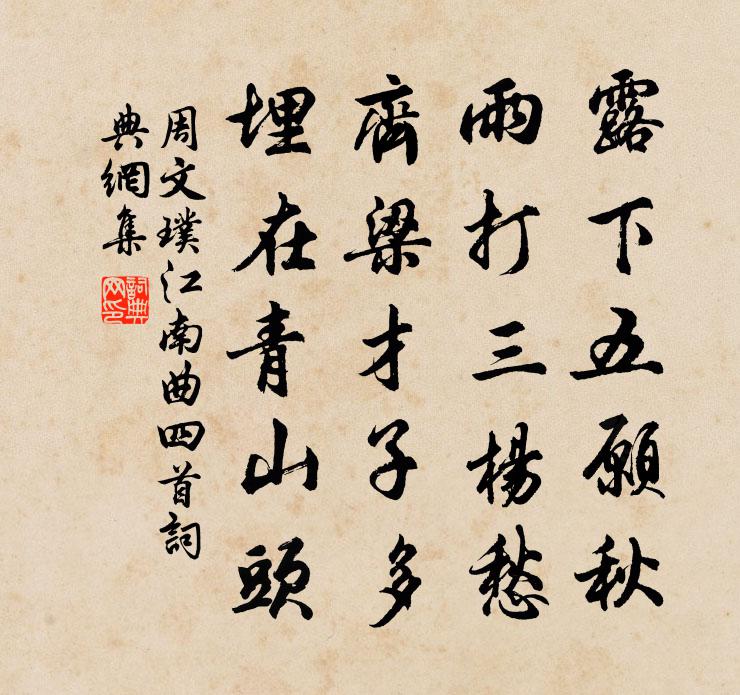 露下五願秋
雨打三楊愁
齊梁才子多
埋在青山頭
周文璞江南曲四首詞
典網集
詞典網印